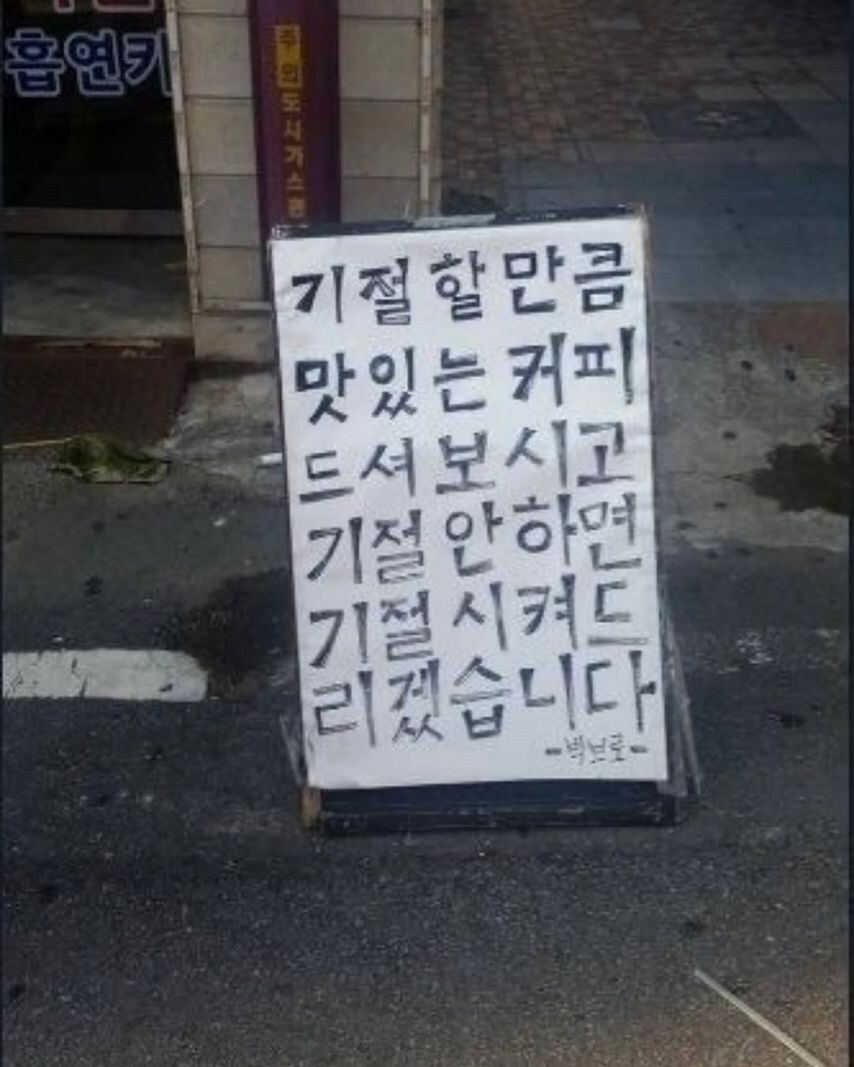 흡연카
주의 도시가스관
기절할만큼
맛있는커피
드셔보시고
기절안하면
기절시켜드
리겠습니다